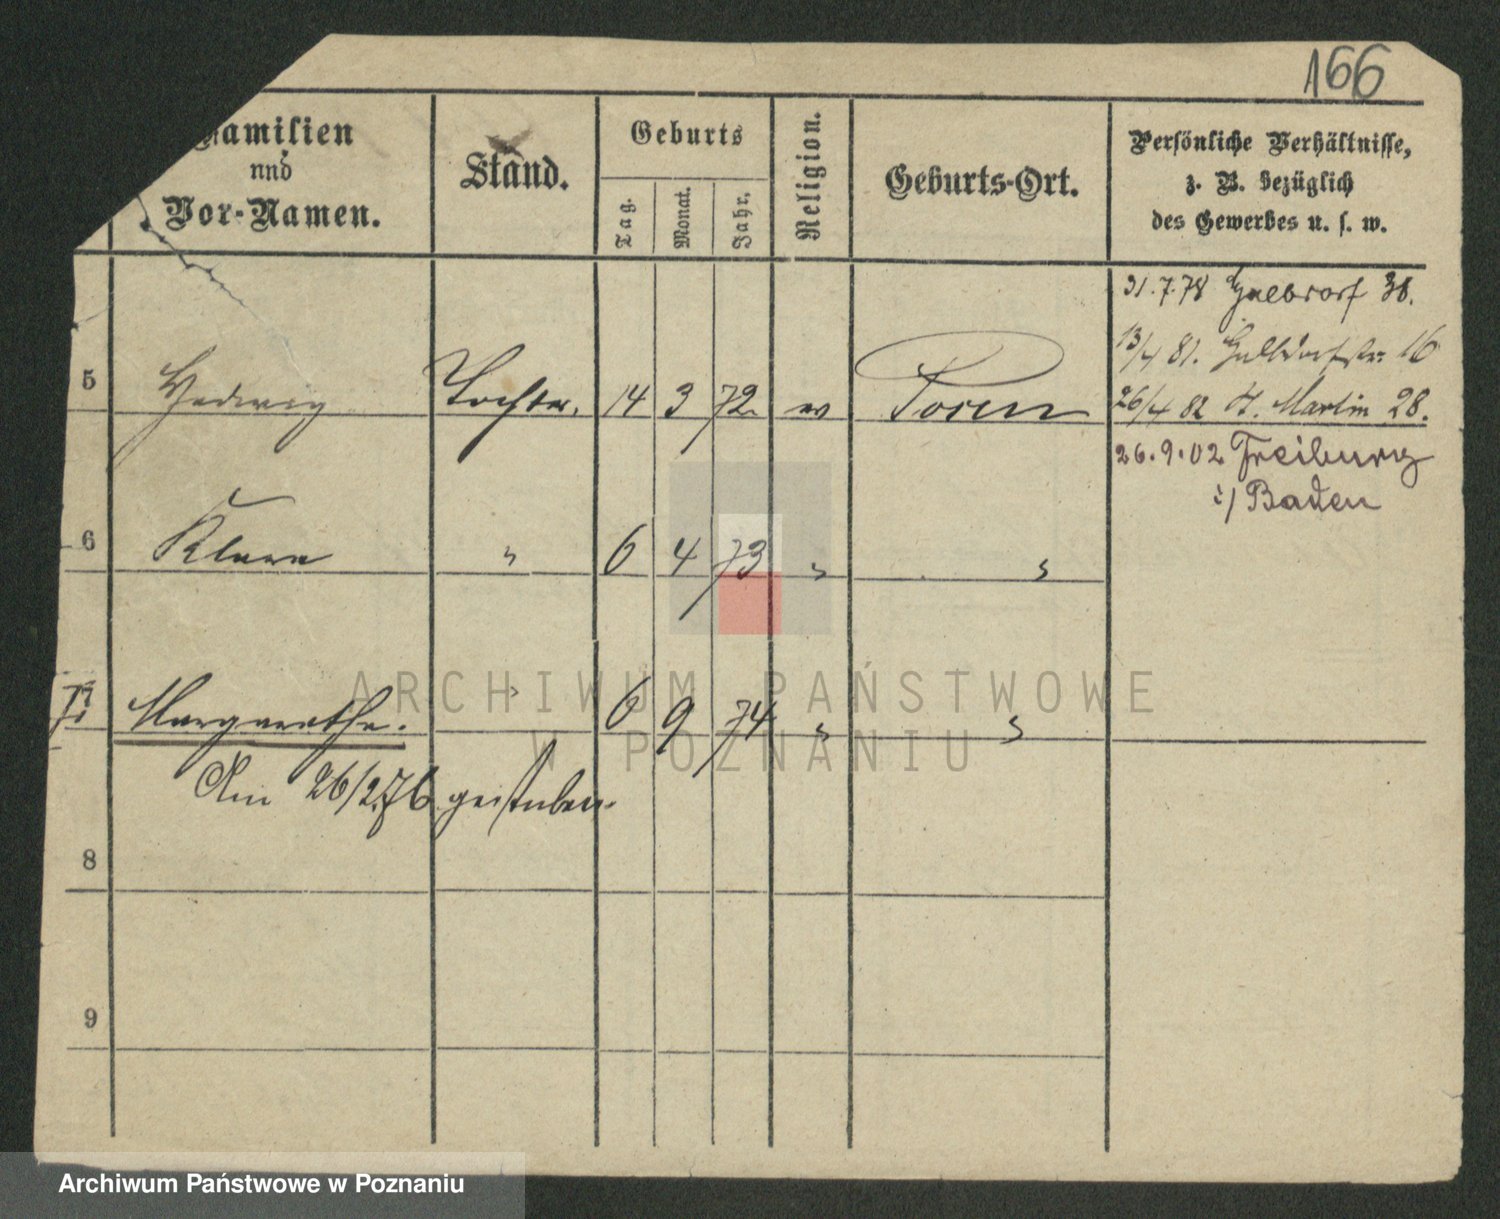 166
Familien
und
Vor-Namen.
Stand.
Geburts
Tag.
Monat.
Jahr.
Religion.
Geburts-Ort.
Persönliche Verhältnisse,
z. B. bezüglich
des Gewerbes u. s. w.
31.7.78 38.
13/4 81. Halbdorfstr. 16
5 Hedwig Tochter. 14 3 72 ev Posen
26/4 82 St. Martin 28.
26.9.02 Freiburg
i/ Baden
6 Klara " 6 4 73 " "
7 Margarethe. " 6 9 74 " "
Am 26/2.76 gestorben.
8
9
ARCHIWUM PAŃSTWOWE
W POZNANIU
Archiwum Państwowe w Poznaniu